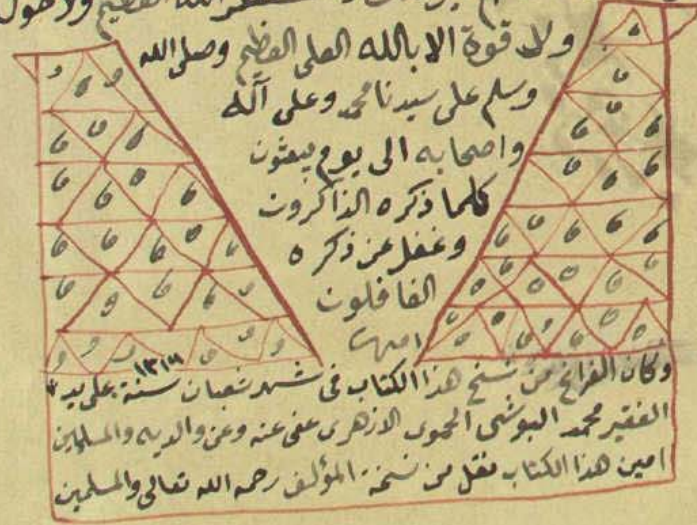 العظيم ولا حول
ولا قوة الا بالله العلى العظيم وصلى الله
وسلم على سيدنا محمد وعلى آله
واصحابه الى يوم يبعثون
كلما ذكره الذاكرون
وغفل عن ذكره
الغافلون
امين
وكان الفراغ من نسخ هذا الكتاب فى شهر شعبان سنة على يد
الفقير محمد الحموى الازهرى عفى عنه وعن والديه والمسلمين
امين هذا الكتاب نقل من نسخة المؤلف رحمه الله تعالى والمسلمين